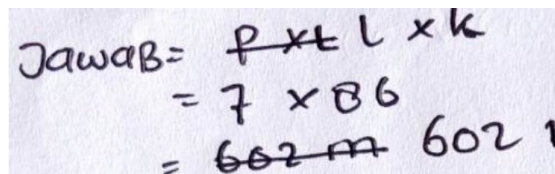 Jawab = ~~p x t~~ l x k
= 7 x 86
= ~~602 m~~ 602